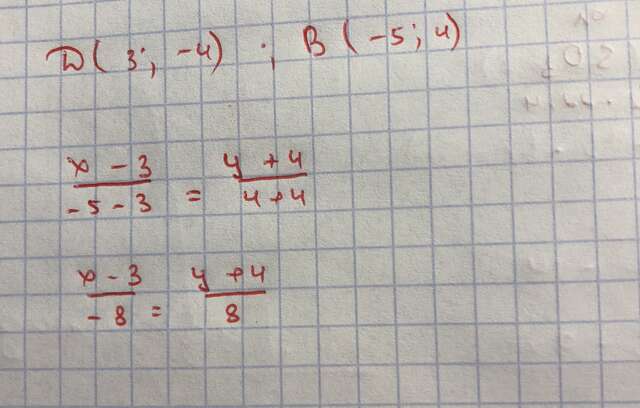 D(3; -4) ; B(-5; 4)
x - 3 / -5 - 3 = y + 4 / 4 + 4
x - 3 / -8 = y + 4 / 8